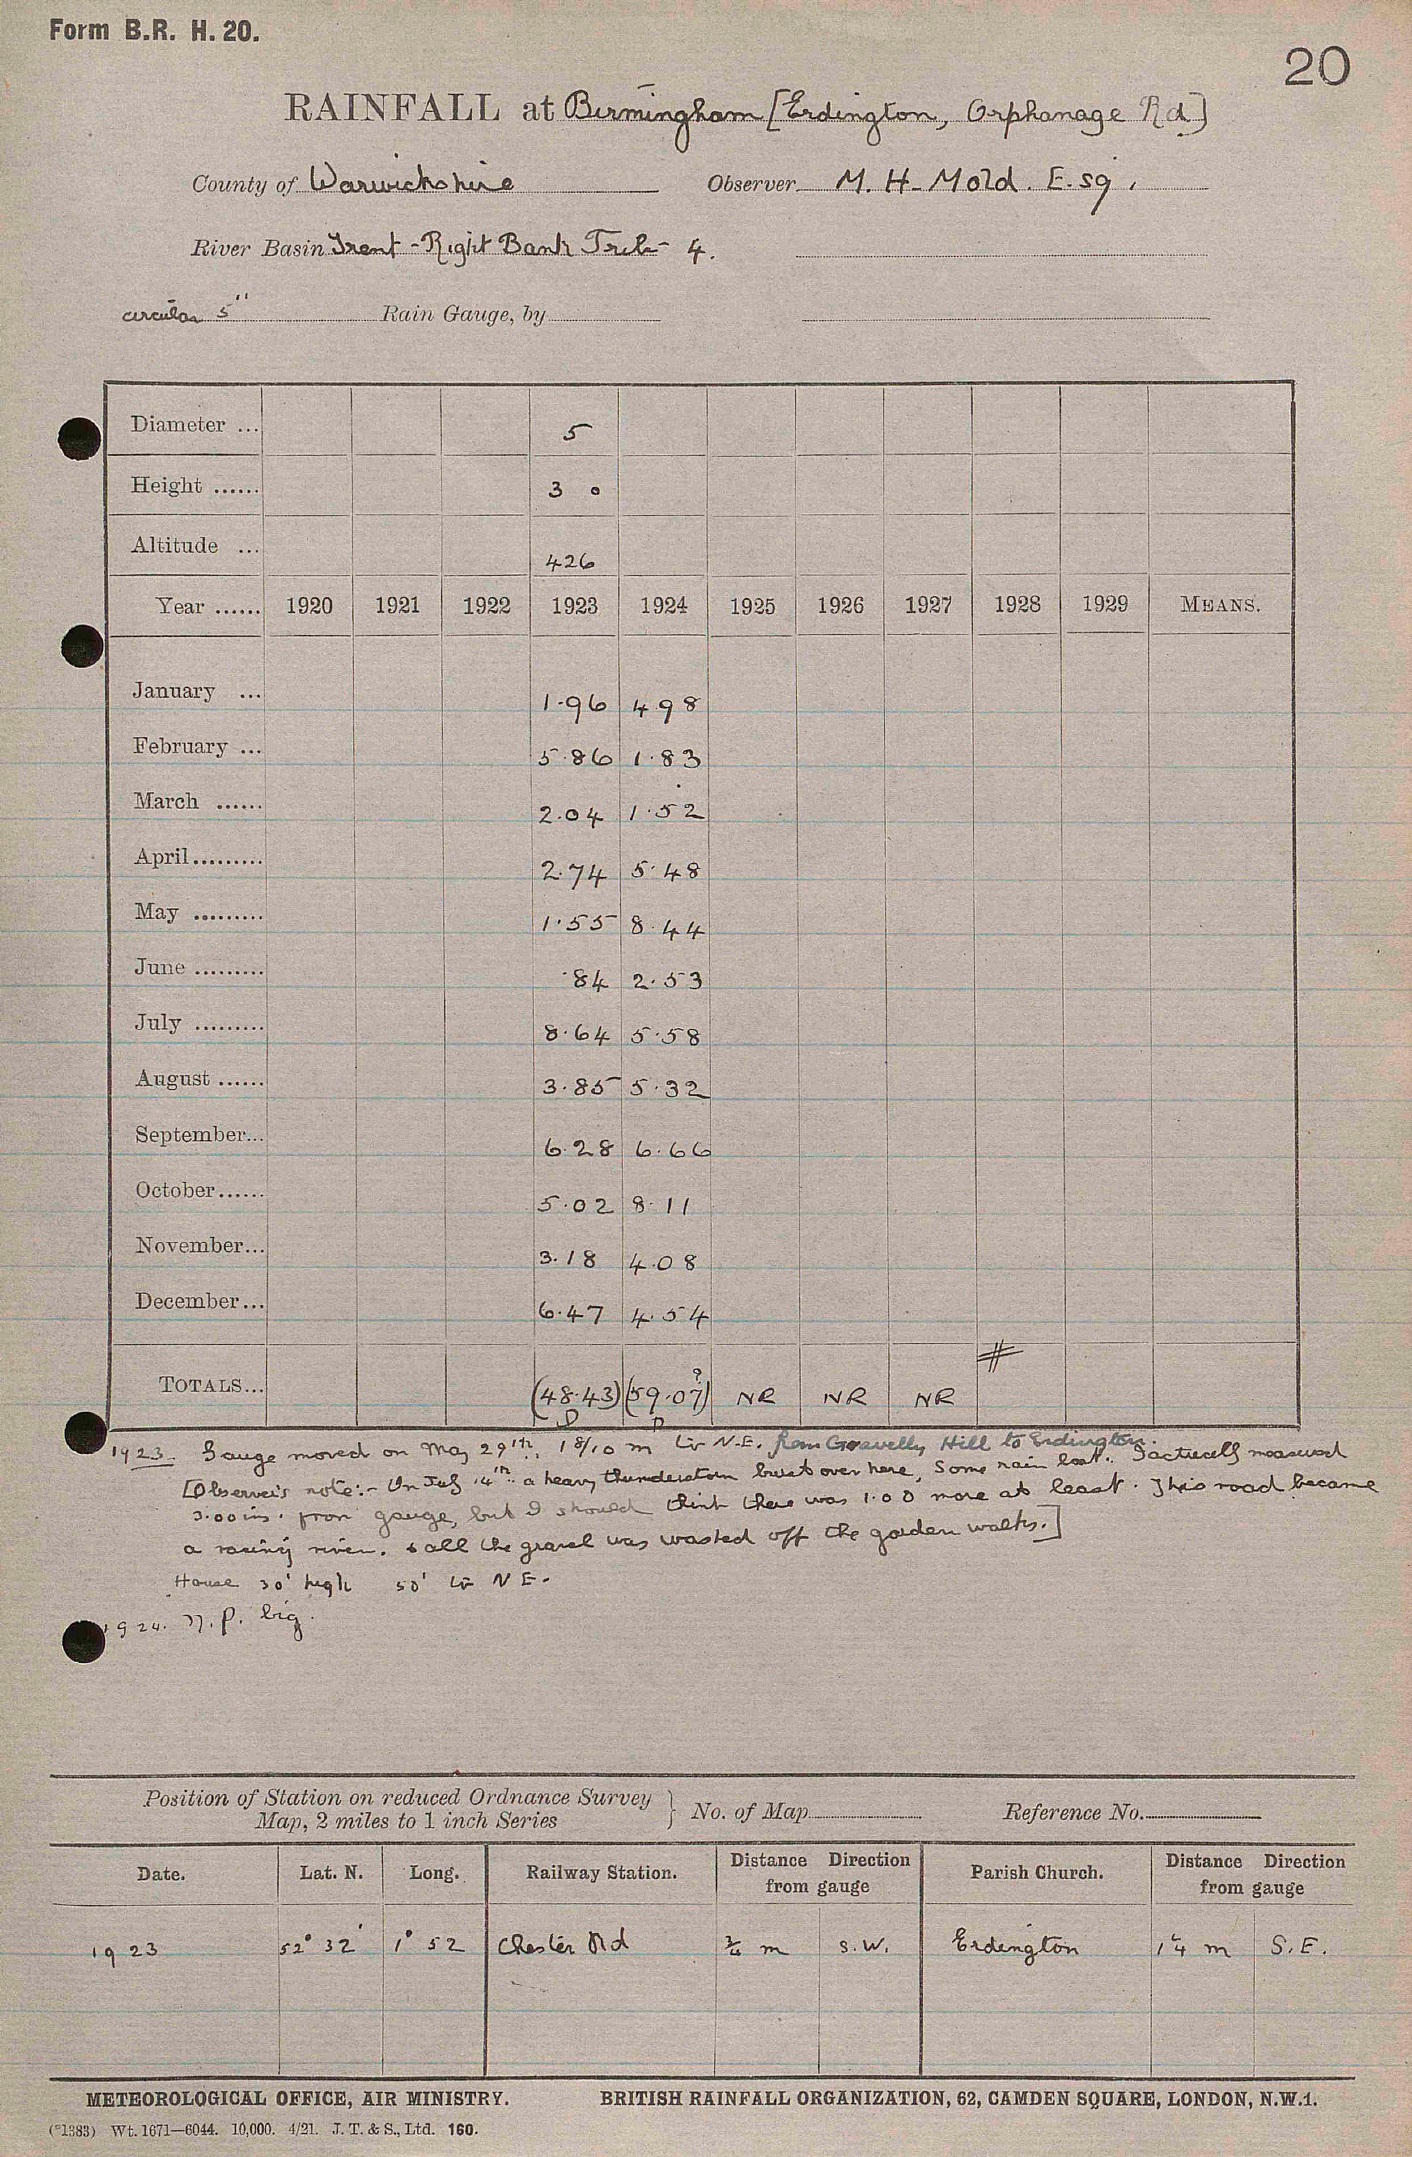 Form B.R. H. 20.
20
RAINFALL at Birmingham [Erdington, Orphanage Rd]
County of Warwickshire Observer M. H. Mold. Esq.
River Basin Trent - Right Bank Trib - 4.
circular 5" Rain Gauge, by
Diameter ... 5
Height ...... 3 0
Altitude ... 426
Year ...... 1920 1921 1922 1923 1924 1925 1926 1927 1928 1929 MEANS.
January ... 1.96 4.98
February ... 5.86 1.83
March ...... 2.04 1.52
April......... 2.74 5.48
May ......... 1.55 8.44
June ......... .84 2.53
July ......... 8.64 5.58
August ...... 3.85 5.32
September... 6.28 6.66
October...... 5.02 8.11
November... 3.18 4.08
December... 6.47 4.54
TOTALS... (48.43) (59.07)? NR NR NR #
1923. Gauge moved on May 29th, 1 8/10 m to N.E. from Gravelly Hill to Erdington.
[Observer's note:- On July 14th a heavy thunderstorm burst over here, some rain lost. I actually measured
3.00 ins. from gauge, but I should think there was 1.00 more at least. This road became
a racing river. & all the gravel was washed off the garden walks.]
House 30' high 50' to NE.
1924. N.P. big.
Position of Station on reduced Ordnance Survey Map, 2 miles to 1 inch Series } No. of Map Reference No.
Date. Lat. N. Long. Railway Station. Distance Direction from gauge Parish Church. Distance Direction from gauge
1923 52° 32' 1° 52 Chester Rd 3/4 m S.W. Erdington m S.E.
METEOROLOGICAL OFFICE, AIR MINISTRY. BRITISH RAINFALL ORGANIZATION, 62, CAMDEN SQUARE, LONDON, N.W.1.
(*1383) Wt. 1671—6044. 10,000. 4/21. J. T. & S., Ltd. 160.